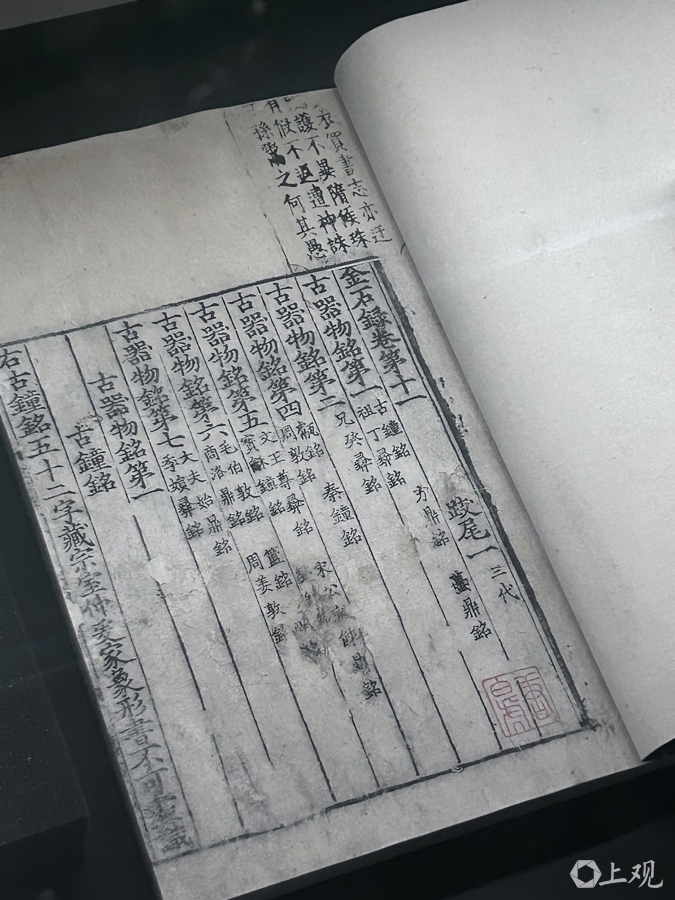 衣買書志亦迂
護不異隋候珠
有假不返遭神誅
孫鬻之何其愚
金石錄卷第十一 跋尾一 三代
古器物銘第一 古鐘銘 祖丁彝銘 方鼎銘 蠆鼎銘
古器物銘第二 兄癸彝銘 秦鐘銘 宋公 鼎銘
古器物銘第四 甗銘 周敦銘
古器物銘第五 文王尊彝銘 簋銘 周姜敦銘
古器物銘第六 毛伯敦銘 商洛鼎銘
古器物銘第七 大夫始鼎銘 季嬉彝銘
古器物銘第一
古鐘銘
右古鐘銘五十二字藏宗室仲爰家象形書不可盡識
上观